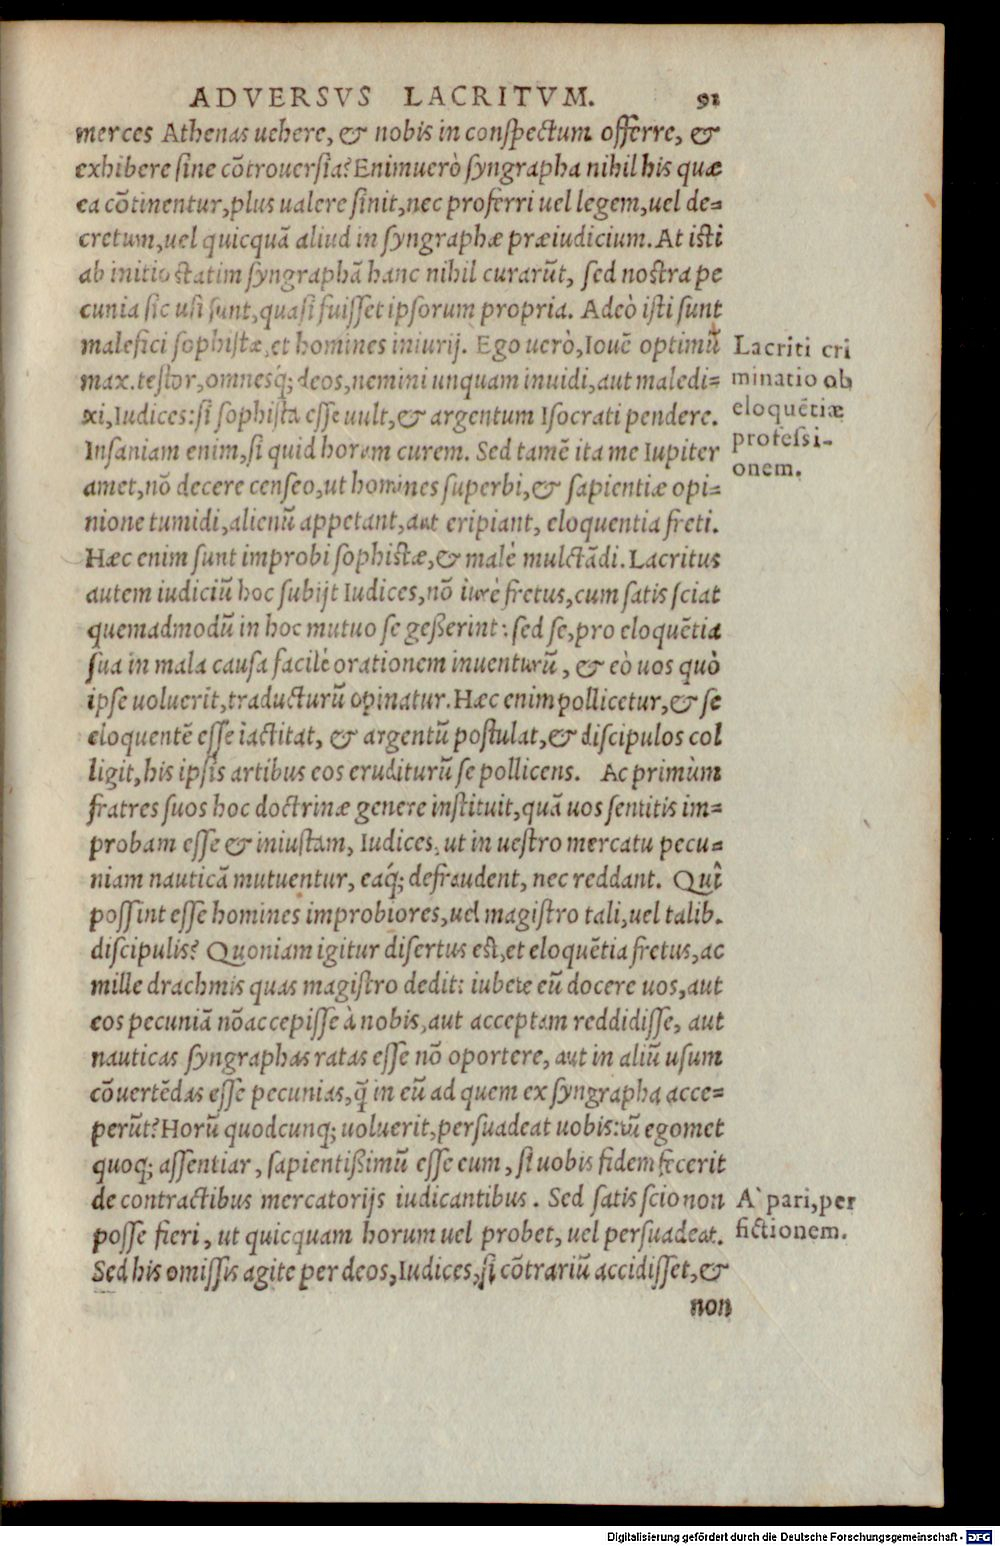 ADVERSVS LACRITVM. 91
merces Athenas uehere, & nobis in conspectum offerre, &
exhibere sine cōtrouersia? Enimuerò syngrapha nihil his quæ
ea cōtinentur, plus ualere sinit, nec proferri uel legem, uel de-
cretum, uel quicquā aliud in syngraphæ præiudicium. At isti
ab initio statim syngraphā hanc nihil curarūt, sed nostra pe
cunia sic usi sunt, quasi fuisset ipsorum propria. Adeò isti sunt
malefici sophistæ, et homines iniurij. Ego uerò, Iouē optimū
max. testor, omnesq́; deos, nemini unquam inuidi, aut maledi-
xi, Iudices: si sophista esse uult, & argentum Isocrati pendere.
Insaniam enim, si quid horum curem. Sed tamē ita me Iupiter
amet, nō decere censeo, ut homines superbi, & sapientiæ opi-
nione tumidi, alienū appetant, aut eripiant, eloquentia freti.
Hæc enim sunt improbi sophistæ, & malè mulctādi. Lacritus
autem iudiciū hoc subijt Iudices, nō iure fretus, cum satis sciat
quemadmodū in hoc mutuo se geßerint: sed se, pro eloquētia
sua in mala causa facilè orationem inuenturū, & eò uos quò
ipse uoluerit, traducturū opinatur. Hæc enim pollicetur, & se
eloquentē esse iactitat, & argentū postulat, & discipulos col
ligit, his ipsis artibus eos eruditurū se pollicens. Ac primùm
fratres suos hoc doctrinæ genere instituit, quā uos sentitis im-
probam esse & iniustam, Iudices, ut in uestro mercatu pecu-
niam nauticā mutuentur, eaq́; defraudent, nec reddant. Quî
possint esse homines improbiores, uel magistro tali, uel talib.
discipulis? Quoniam igitur disertus est, et eloquētia fretus, ac
mille drachmis quas magistro dedit: iubete eū docere uos, aut
eos pecuniā nō accepisse à nobis, aut acceptam reddidisse, aut
nauticas syngraphas ratas esse nō oportere, aut in aliū usum
cōuertēdas esse pecunias, q̄ in eū ad quem ex syngrapha acce-
perūt? Horū quodcunq; uoluerit, persuadeat uobis: egomet
quoq; assentiar, sapientißimū esse eum, si uobis fidem fecerit
de contractibus mercatorijs iudicantibus. Sed satis scio non
posse fieri, ut quicquam horum uel probet, uel persuadeat.
Sed his omissis agite per deos, Iudices, si cōtrariū accidisset, &
non
Lacriti cri
minatio ob
eloquētiæ
professi-
onem.
A` pari, per
fictionem.
Digitalisierung gefördert durch die Deutsche Forschungsgemeinschaft - DFG